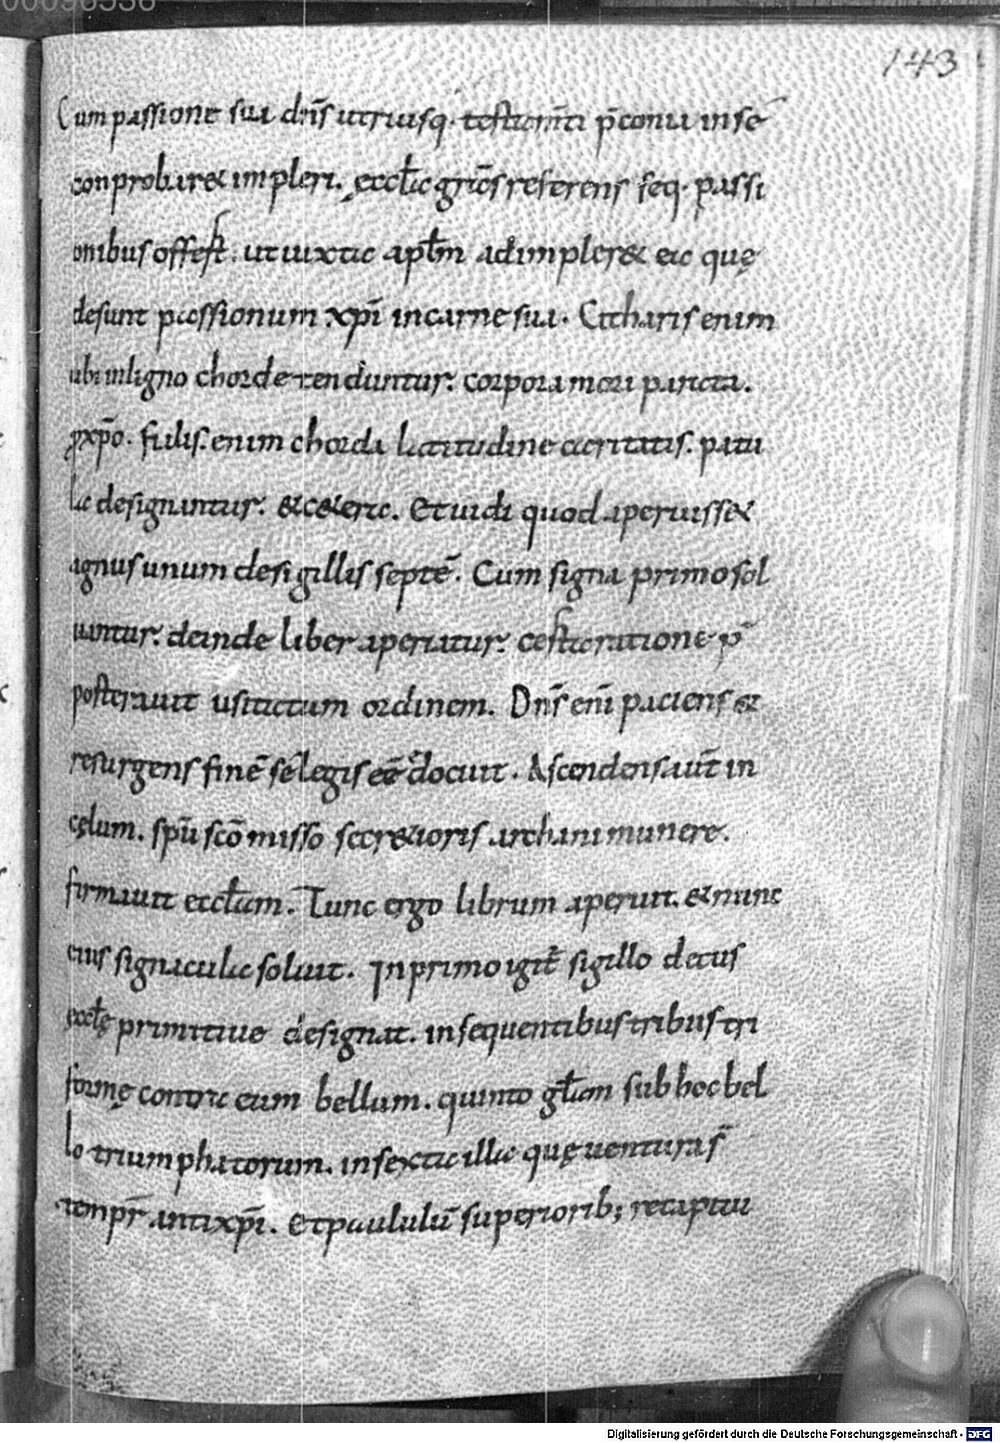 00096558
143
Cum passione sua dn̄s utriusq. testam̄ti p̄conia in sē
conprobar& impleri. ęccl̄ia gr̄as referens seq. passi
onibus offert. ut iuxta apl̄m adimpler& ea quę
desunt passionum xp̄i in carne sua. Citharis enim
ubi in ligno chordę tenduntur. corpora mori parata.
ꝓ xp̄o. fialis. enim chorda latitudine caritatis. patu
la designantur. & cetera. Et uidi quod aperuiss&
agnus unum de sigillis septē. Cum signa primo sol
uantur. deinde liber aperiatur. certa ratione p̄
posterauit usitatum ordinem. Dn̄s eni paciens et
resurgens finē sē legis eē docuit. Ascendens aut̄ in
cęlum. sp̄u sc̄o misso secr&ioris archani munere.
firmauit eccl̄am. Tunc ergo librum aperuit. & nunc
eius signacula soluit. In primo igit̄ sigillo decus
ęccl̄ę primitiuę designat. in sequentibus tribus tri
formę contra eam bellum. quinto gl̄am sub hoc bel
lo triumphatorum. in sexta illa quę uentura s̄
tempr̄ antixp̄i. Et paululū superiorib; recapitu
Digitalisierung gefördert durch die Deutsche Forschungsgemeinschaft - DFG